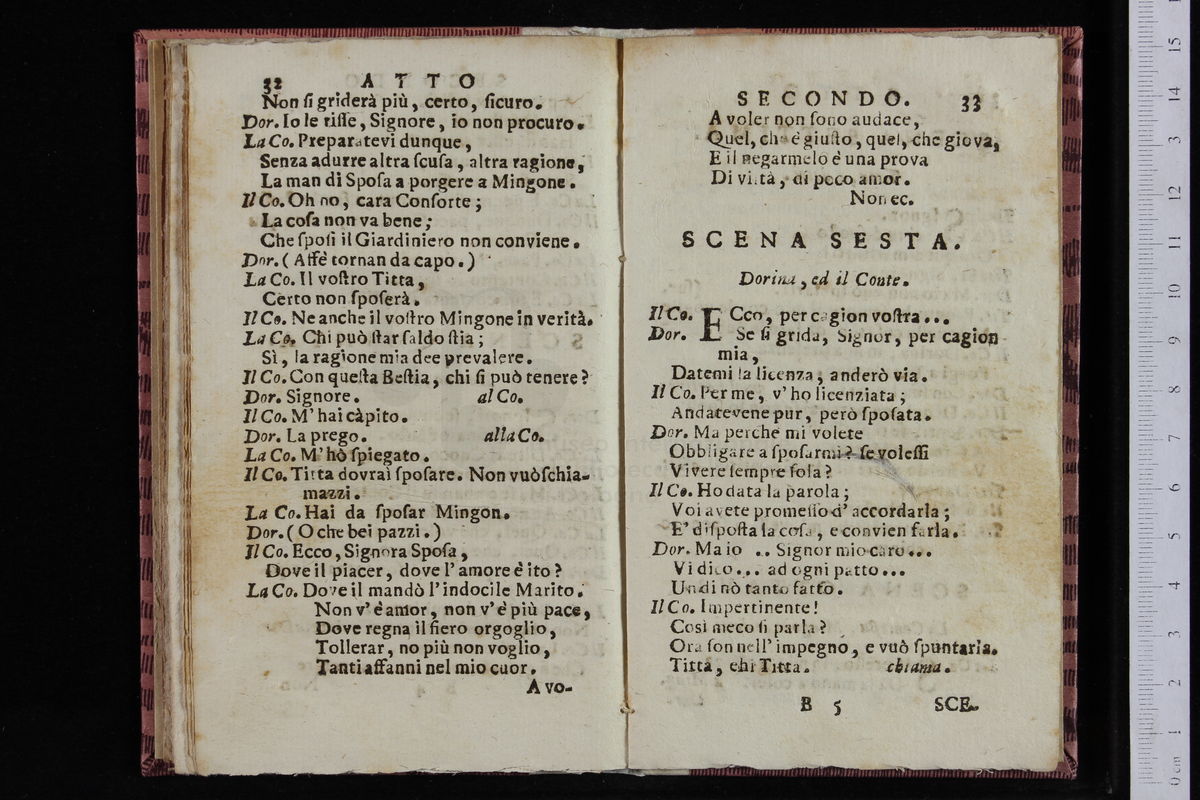 32 ATTO
Non ſi griderà più, certo, ſicuro.
Dor. Io le riſſe, Signore, io non procuro.
La Co. Preparatevi dunque,
Senza adurre altra ſcuſa, altra ragione,
La man di Spoſa a porgere a Mingone.
Il Co. Oh no, cara Conſorte;
La coſa non va bene;
Che ſpoſi il Giardiniero non conviene.
Dor. (Affè tornan da capo.)
La Co. Il voſtro Titta,
Certo non ſpoſerà.
Il Co. Ne anche il voſtro Mingone in verità.
La Co. Chi può ſtar ſaldo ſtia;
Sì, la ragione mia dee prevalere.
Il Co. Con queſta Beſtia, chi ſi può tenere?
Dor. Signore. al Co.
Il Co. M' hai càpito.
Dor. La prego. alla Co.
La Co. M' hò ſpiegato.
Il Co. Titta dovrai ſpoſare. Non vuò ſchia-
mazzi.
La Co. Hai da ſpoſar Mingon.
Dor. (O che bei pazzi.)
Il Co. Ecco, Signora Spoſa,
Dove il piacer, dove l' amore è ito?
La Co. Dove il mandò l' indocile Marito.
Non v' è amor, non v' è più pace,
Dove regna il fiero orgoglio,
Tollerar, no più non voglio,
Tanti affanni nel mio cuor.
A vo-
SECONDO. 33
A voler non ſono audace,
Quel, che è giuſto, quel, che giova,
E il negarmelo è una prova
Di viltà, di poco amor.
Non ec.
SCENA SESTA.
Dorina, ed il Conte.
Il Co. ECco, per cagion voſtra...
Dor. Se ſi grida, Signor, per cagion
mia,
Datemi la licenza, anderò via.
Il Co. Per me, v' ho licenziata;
Andatevene pur, però ſpoſata.
Dor. Ma perchè mi volete
Obbligare a ſpoſarmi? ſe voleſſi
Vivere ſempre ſola?
Il Co. Ho data la parola;
Voi avete promeſſo d' accordarla;
E' diſpoſta la coſa, e convien farla.
Dor. Ma io .. Signor mio caro...
Vi dico... ad ogni patto...
Un dì nò tanto fatto.
Il Co. Impertinente!
Così meco ſi parla?
Ora ſon nell' impegno, e vuò ſpuntarla.
Titta, ehi Titta. chiama.
B 5 SCE-